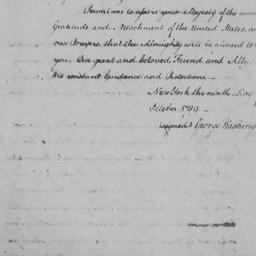 Permit me to assure your Majesty of the
Gratitude and Attachment of the United States, an
our Prayers, that the Almighty will be pleased to
you, Our great and beloved Friend and Ally,
His constant Guidance and Protection—
New York the ninth Day
October 1789.
(signed) George Washing